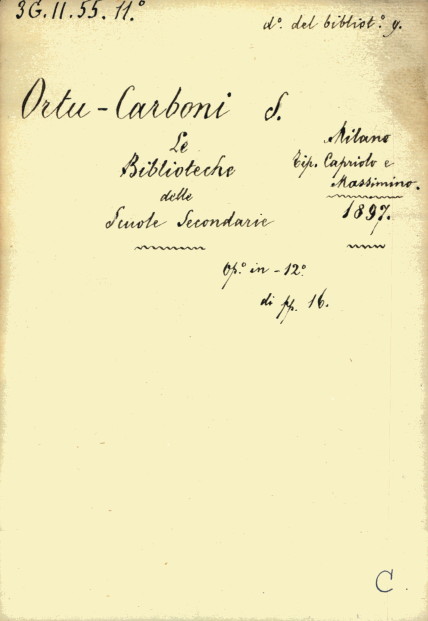 3G.II.55.11.°
d.° del bibliot.° g.
Ortu-Carboni S.
Le
Biblioteche
delle
Scuole Secondarie
Milano
Tip. Capriolo e
Massimino.
1897.
Op.° in-12.°
di pp. 16.
C